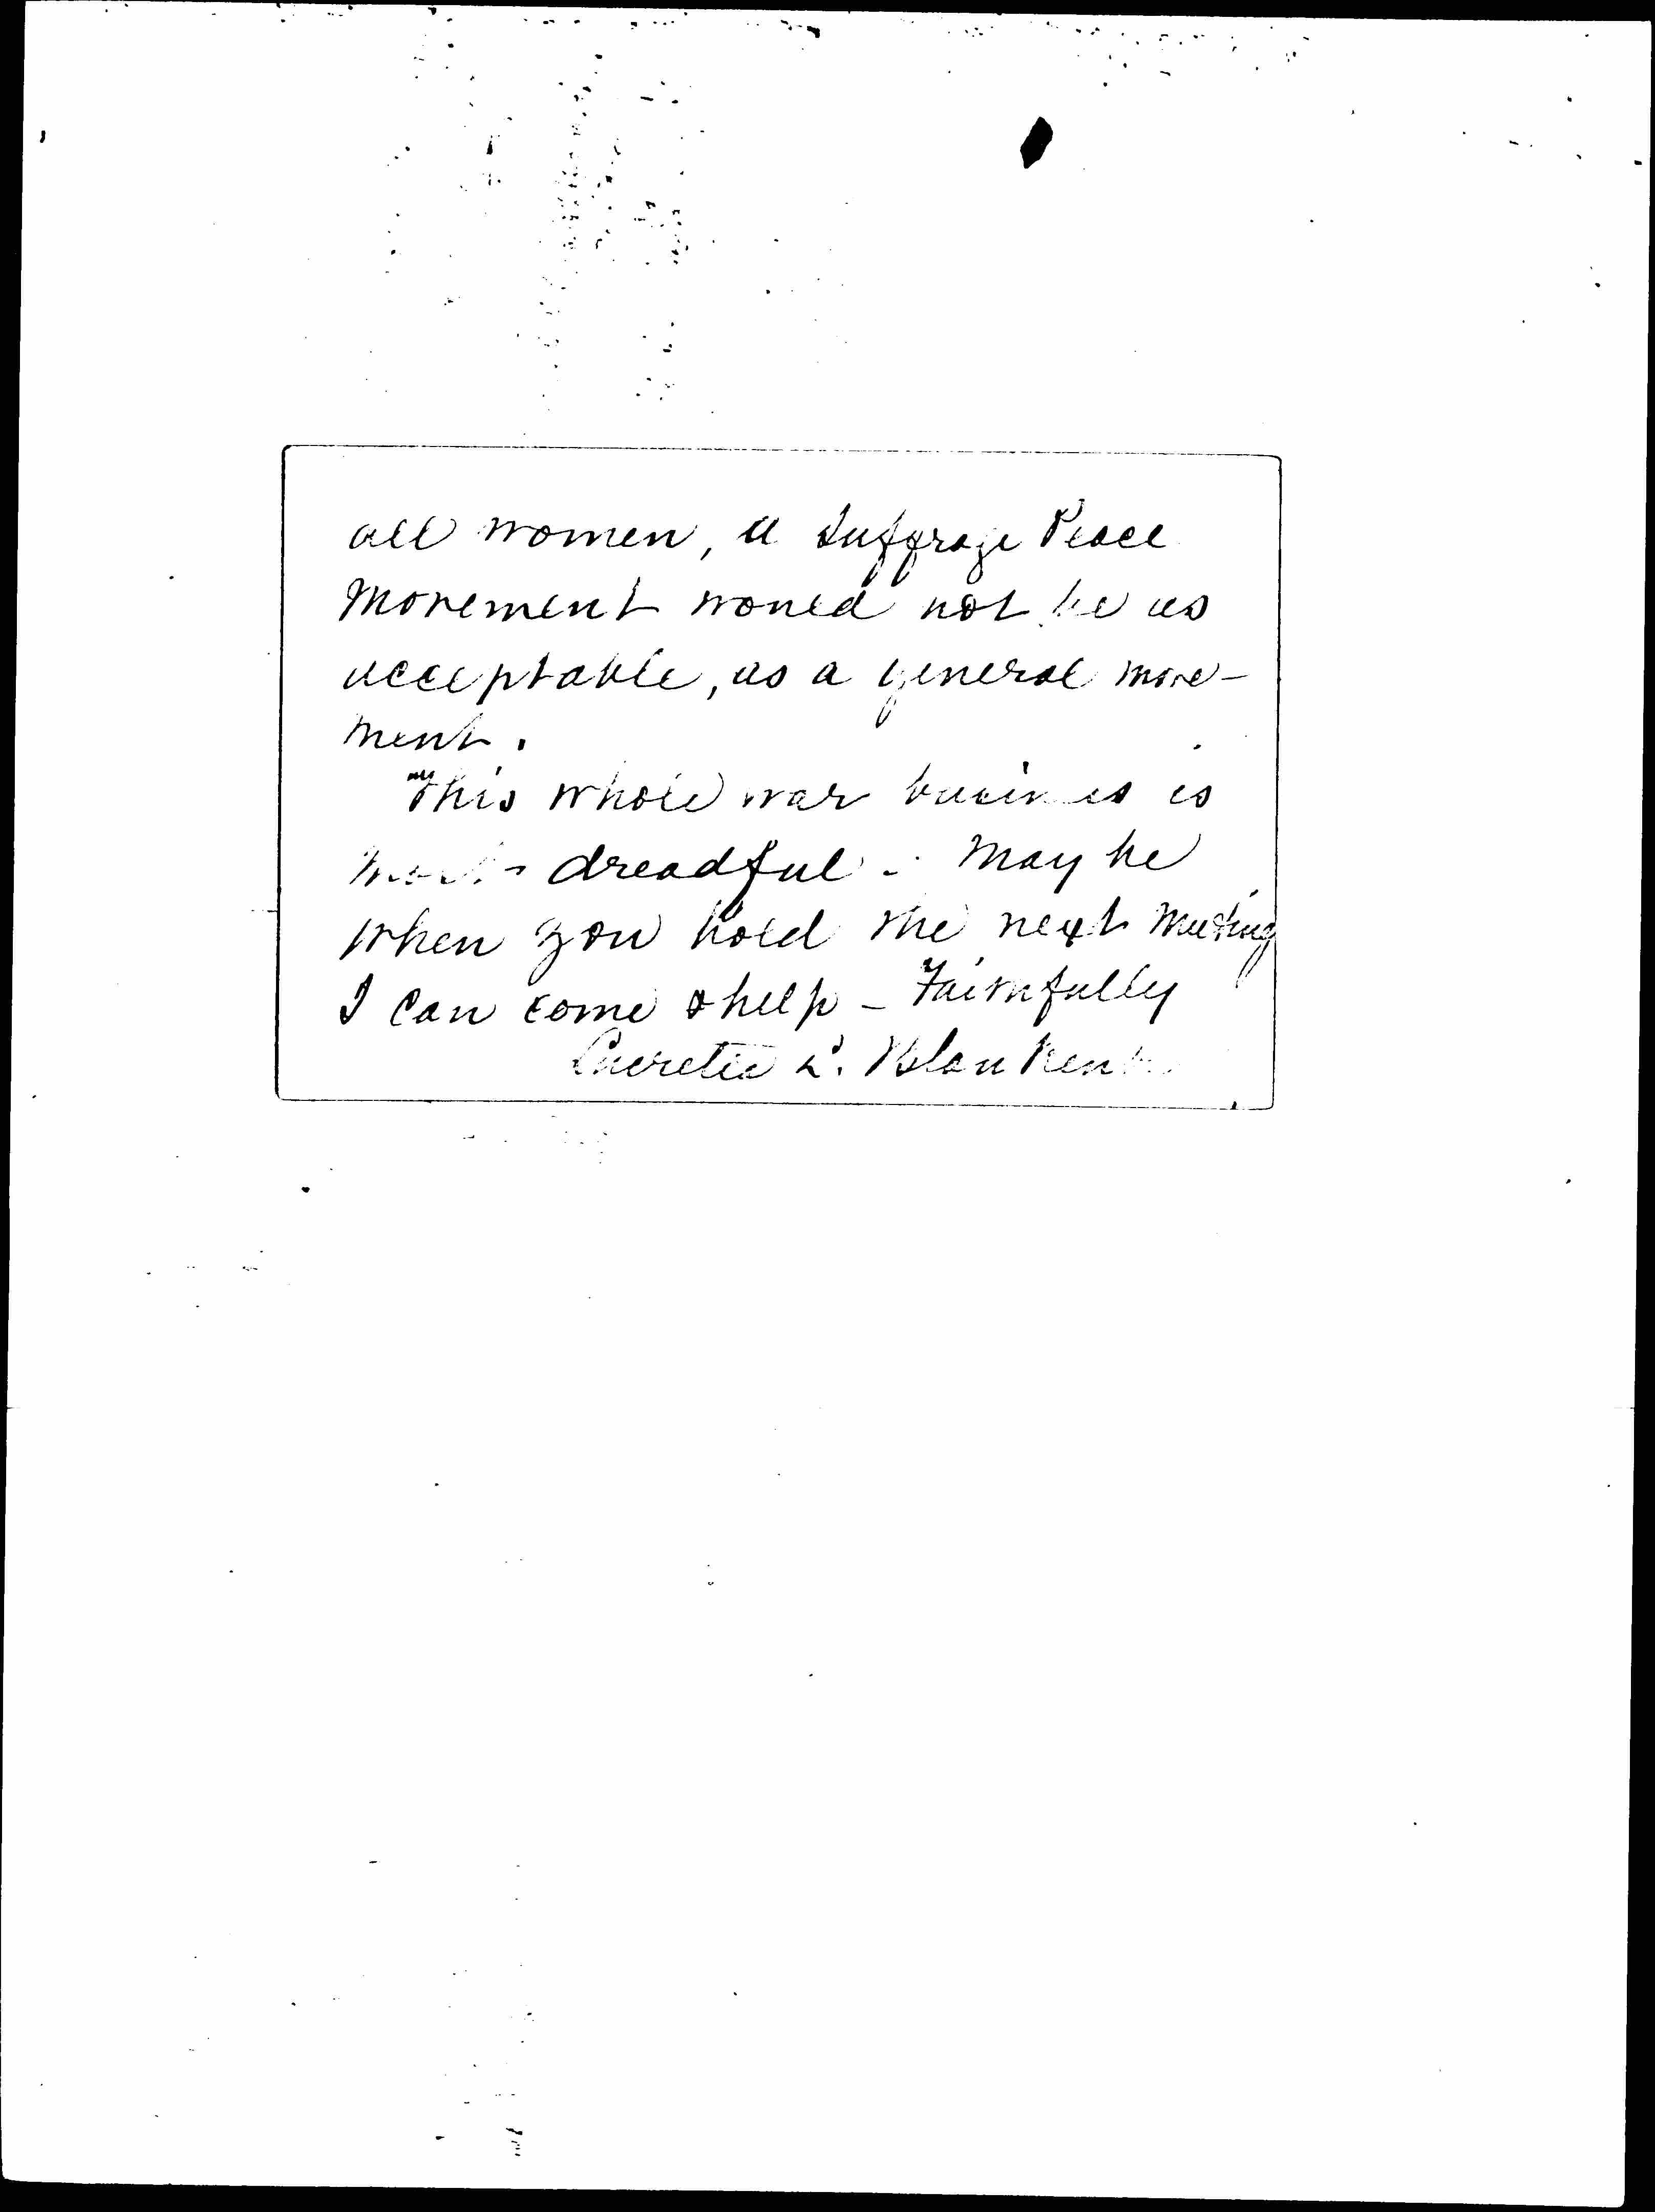 all women, a Suffrage Peace
Movement would not be as
acceptable, as a general move-
ment.
This whole war business is
most dreadful - May be
when you hold the next meeting
I can come & help - Faithfully
Lucretia L. Blanken